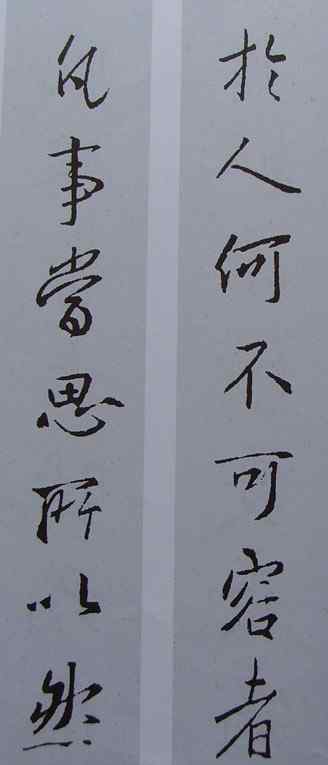 於人何不可容者
凡事當思所以然